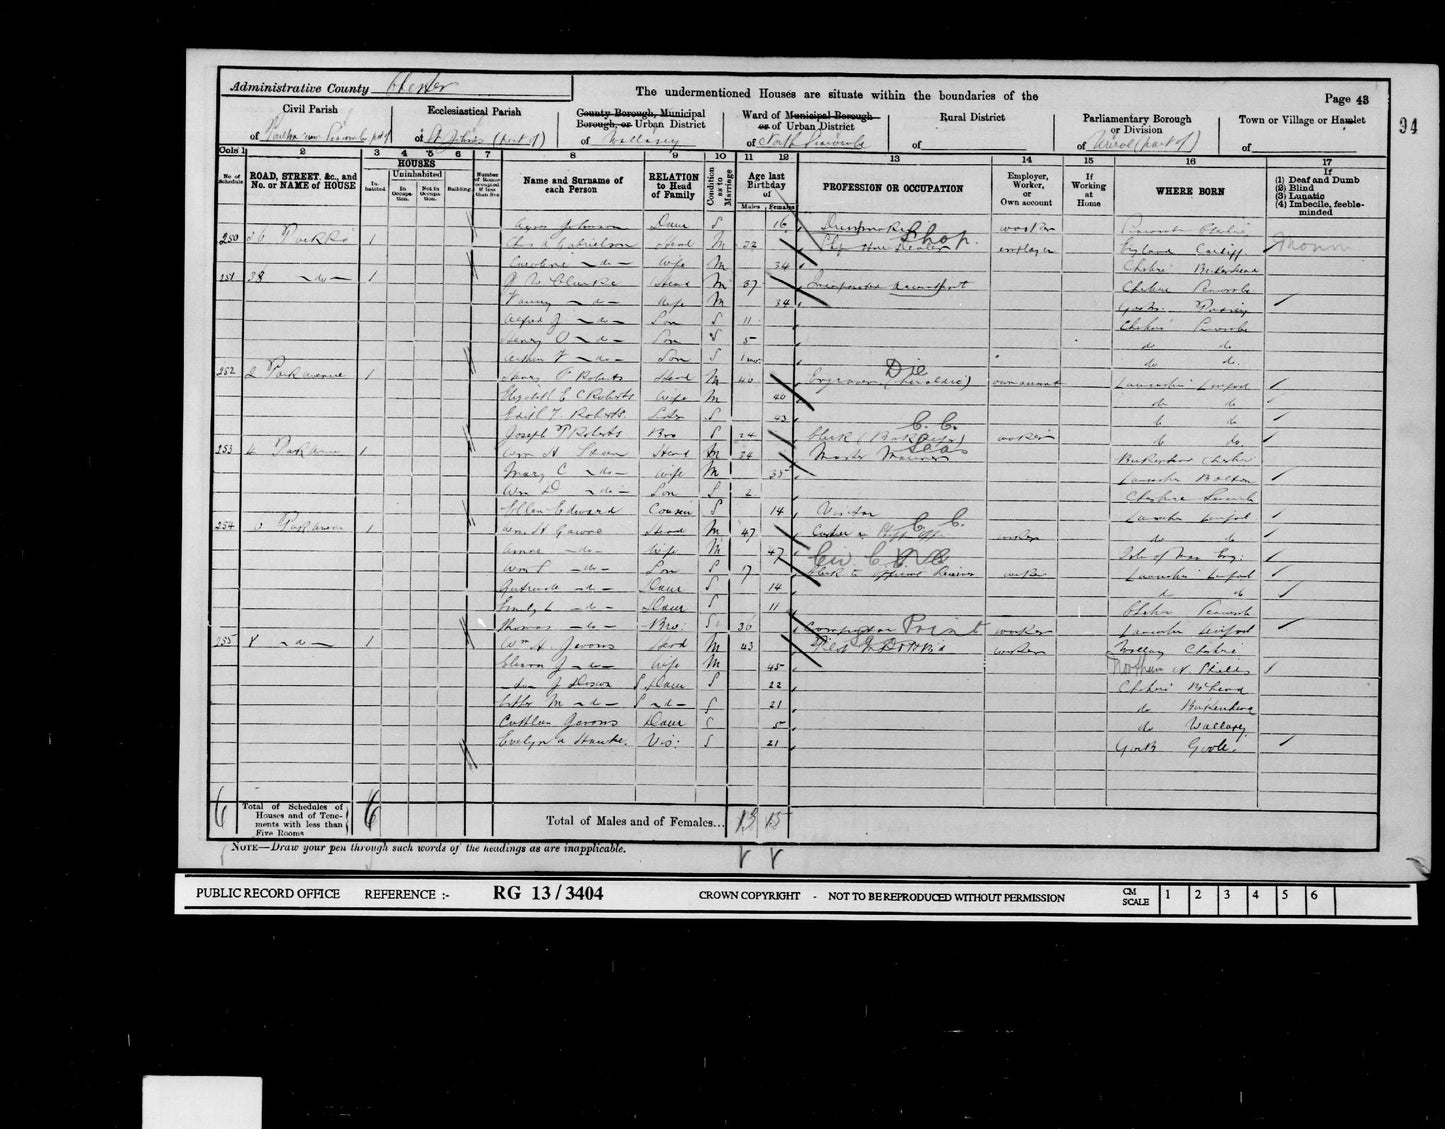 Administrative County Chester
The undermentioned Houses are situate within the boundaries of the
Page 43
94
Civil Parish
of Poulton cum Seacombe pt of
Ecclesiastical Parish
of St John's (part of)
County Borough, Municipal Borough, or Urban District
of Wallasey
Ward of Municipal Borough or of Urban District
of North Seacombe
Rural District
of
Parliamentary Borough or Division
of Wirral (part of)
Town or Village or Hamlet
of
Cols 1 2 3 4 5 6 7 8 9 10 11 12 13 14 15 16 17
No. of Schedule
ROAD, STREET, &c., and No. or NAME of HOUSE
HOUSES
Inhabited
Uninhabited
In Occupation.
Not in Occupation.
Building
Name and Surname of each Person
RELATION to Head of Family
Condition as to Marriage
Age last Birthday of
Males Females
PROFESSION OR OCCUPATION
Employer, Worker, or Own account
If Working at Home
WHERE BORN
If
(1) Deaf and Dumb
(2) Blind
(3) Lunatic
(4) Imbecile, feeble-minded
Agnes Johnson Daur S 16 Dressmaker worker
250 36 Park Rd 1 Gabrielson Head M 32 Shop employer England Cardiff
Caroline - do - Wife M 34 Cheshire Birkenhead
251 38 - do - 1 Clarke Head M 37 Incorporated accountant Cheshire Seacombe
- do - Wife M 34
Alfred J - do - Son S 11 Cheshire Seacombe
Henry O - do - Son S 5 do do
Arthur F - do - Son S 1 mo do do.
252 2 Park Avenue 1 Henry Roberts Head M 40 Engraver (heraldic) Die own account Lancashire Liverpool
Elizabeth E C Roberts Wife M 40 do do
Edith F. Roberts S 43 do do
Joseph P Roberts Bro S 34 Clerk C. C. worker do do.
253 4 Park Avenue 1 Wm H Head M 34 Master Mariner Seas Birkenhead Cheshire
Mary C - do - Wife M 35 Lancashire Bolton
Wm D - do - Son S 2 Cheshire Seacombe
Ellen Edward Cousin S 14 Visitor Lancashire Liverpool
254 6 Park Avenue 1 Wm H Head M 47 C. C. worker do do
- do - Wife M 47 Isle of Man
Wm - do - Son S 17 Clerk to Official Receiver Civ C worker Lancashire Liverpool
Gertrude - do - Daur S 14 do do
Emily - do - Daur S 11 Cheshire Seacombe
Thomas - do - Bro: S 36 Compositor Print worker Lancashire Liverpool
255 8 - do - 1 Wm H Jevons Head M 43 worker Wallasey Cheshire
J - do - Wife M 45 N Shields
S Daur S 22 Cheshire
M - do - S - do - S 21 do Birkenhead
Jevons Daur S 5 do Wallasey
Evelyn A Vis: S 21 York Goole.
6
Total of Schedules of Houses and of Tenements with less than Five Rooms
6
Total of Males and of Females...
13 15
NOTE—Draw your pen through such words of the headings as are inapplicable.
PUBLIC RECORD OFFICE REFERENCE :- RG 13/3404 CROWN COPYRIGHT - NOT TO BE REPRODUCED WITHOUT PERMISSION CM SCALE 1 2 3 4 5 6